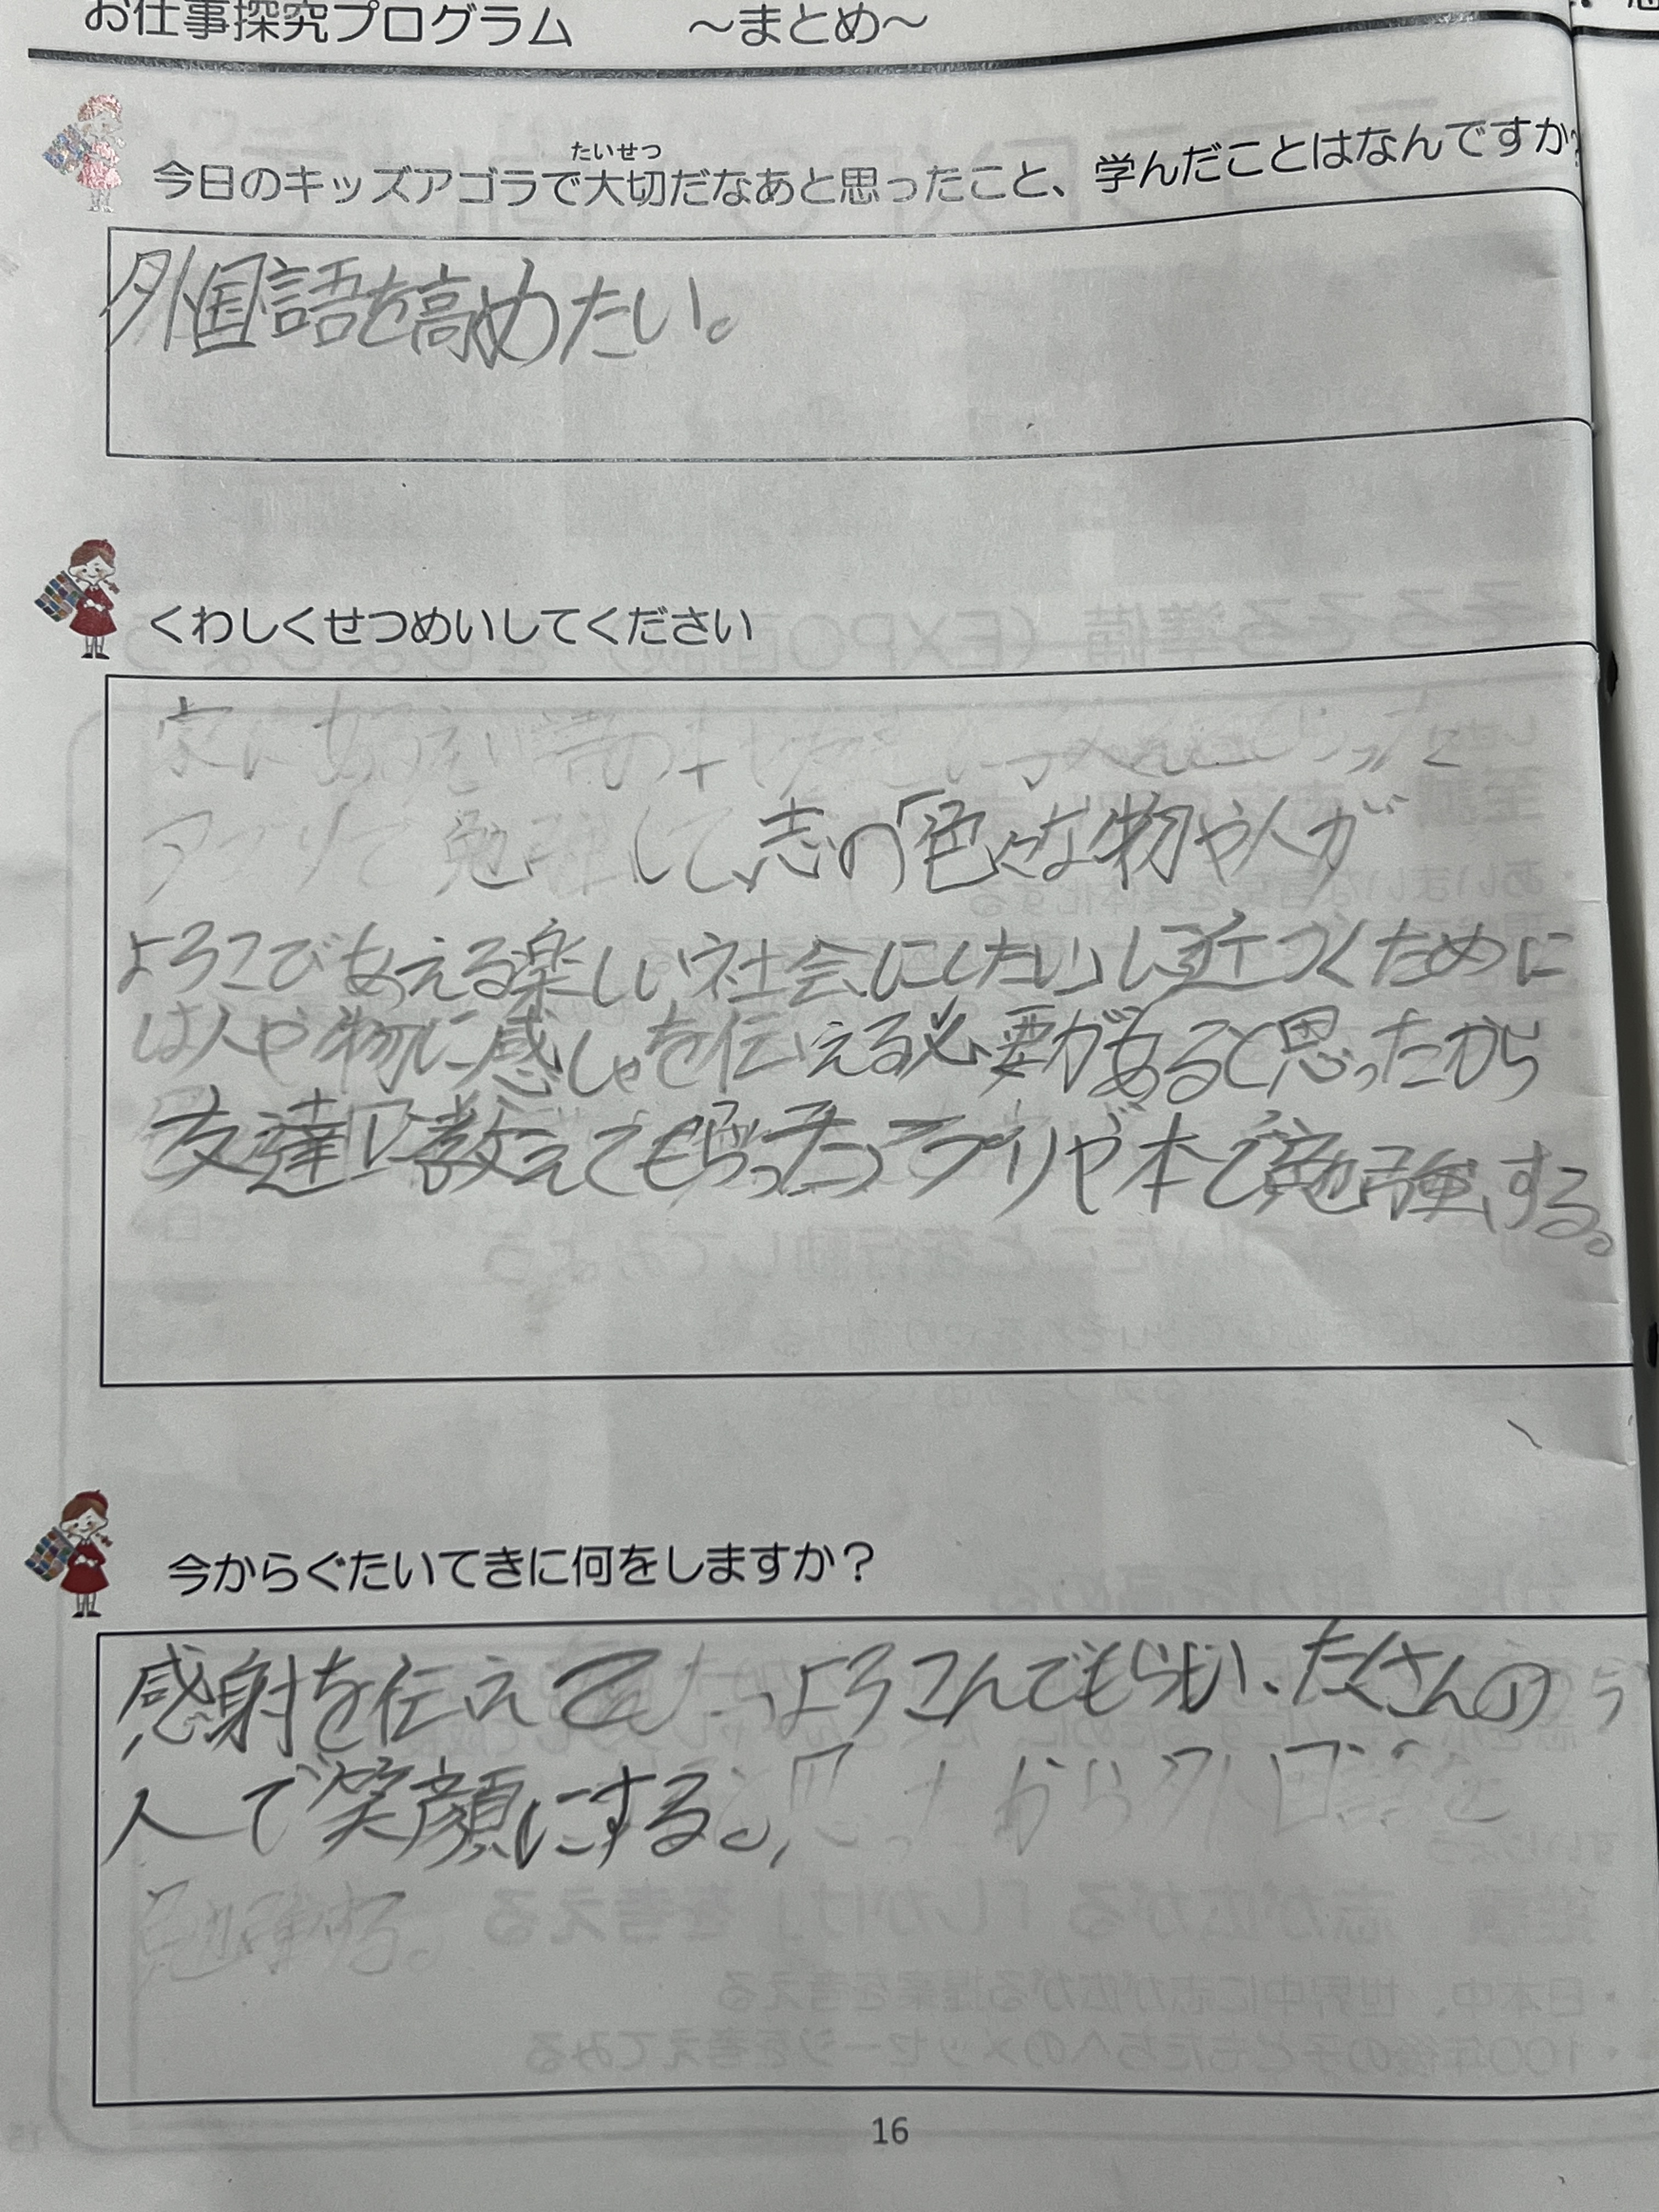 お仕事探究プログラム ～まとめ～
たいせつ
今日のキッズアゴラで大切だなあと思ったこと、学んだことはなんですか?
外国語を高めたい。
くわしくせつめいしてください
アプリで勉強して、志の「色々な物や人が
ようこびあえる楽しい社会にしたい」に近づくために
は人や物に感しゃを伝える必要があると思ったから
友達に教えてもらったアプリや本で勉強する。
今からぐたいてきに何をしますか？
感射を伝えて ようこんでもらい、たくさんの
人で笑顔にする。 思ったから外国語を
勉強する。
16